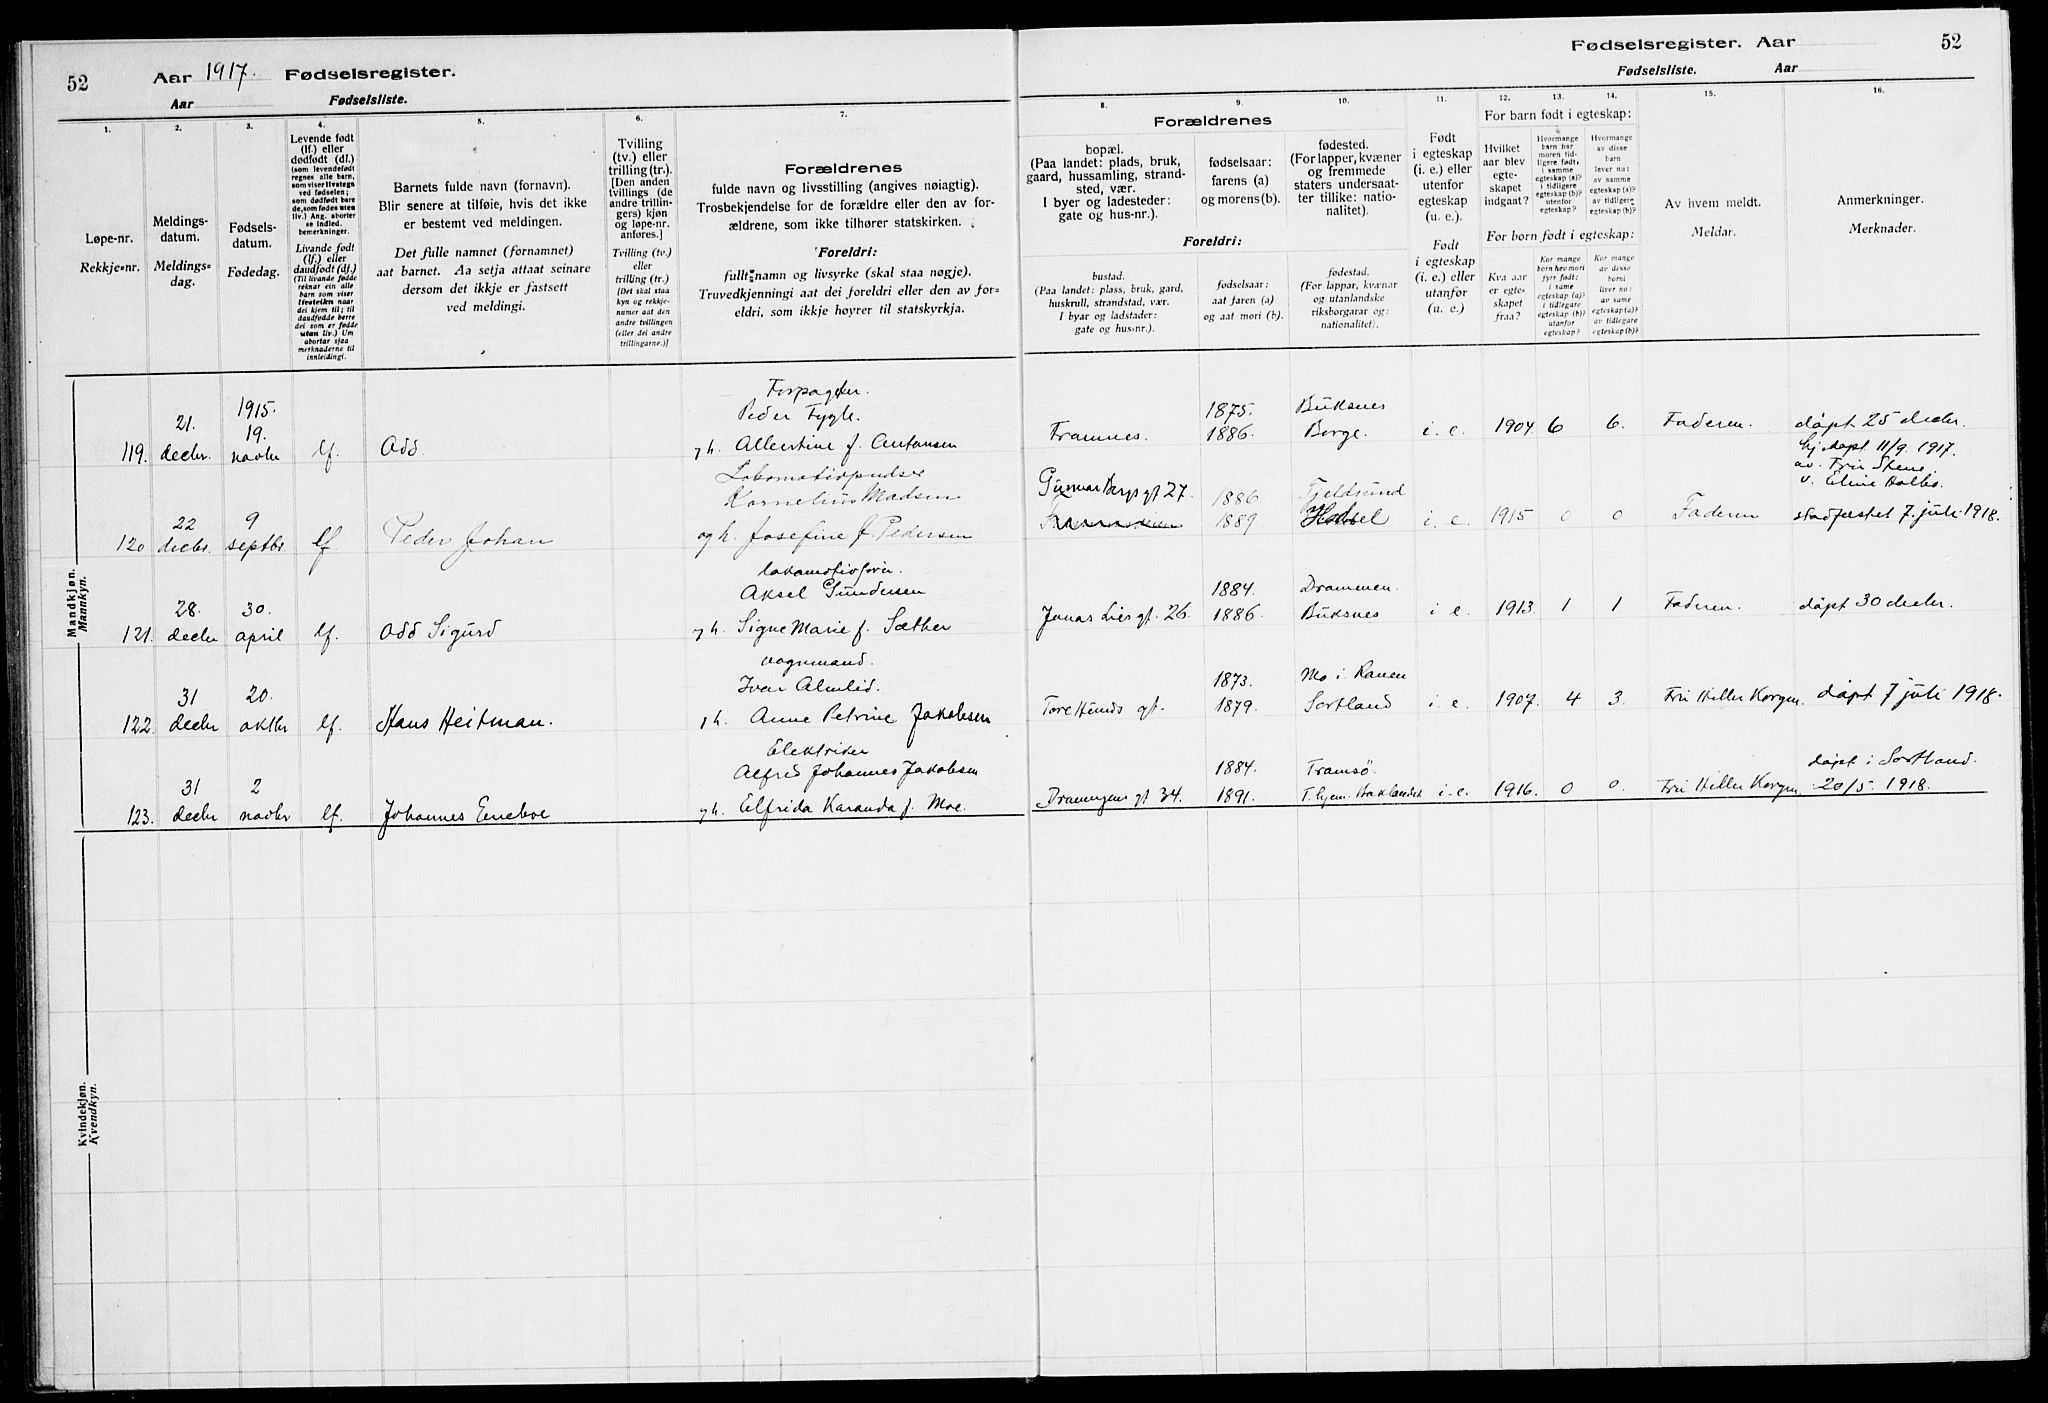 52
Aar 1917. Fødselsregister.
Aar Fødselsliste.
Fødselsregister. Aar
52
Fødselsliste. Aar
1.
Løpe-nr.
Rekkje-nr.
2.
Meldings-
datum.
Meldings-
dag.
3.
Fødsels-
datum.
Fødedag.
4.
Levende født
(lf.) eller
dødfødt (df.)
(som levendefødt
regnes alle barn,
som viser livstegn
ved fødselen;
som dødfødt bare
de, som fødes uten
liv.) Ang. aborter
se indled.
bemerkninger.
Livande født
(lf.) eller
daudfødt (df.)
(Til livande fødde
reknar ein alle
barn som viser
livsteikn naar
dei kjem til; til
daudfødde berre
dei som er fødde
utan liv.) Um
abortar sjaa
merknaderne til
innleidingi.
5.
Barnets fulde navn (fornavn).
Blir senere at tilføie, hvis det ikke
er bestemt ved meldingen.
Det fulle namnet (fornamnet)
aat barnet. Aa setja attaat seinare
dersom det ikkje er fastsett
ved meldingi.
6.
Tvilling
(tv.) eller
trilling (tr.).
[Den anden
tvillings (de
andre trillin-
gers) kjøn
og løpe-nr.
anføres.]
Tvilling (tv.)
eller
trilling (tr.)
[Det skal staa
kyn og rekkje-
numer aat den
andre tvillingen
(eller dei andre
trillingarne.)]
7.
Forældrenes
fulde navn og livsstilling (angives nøiagtig).
Trosbekjendelse for de forældre eller den av for-
ældrene, som ikke tilhører statskirken.
Foreldri:
fullt namn og livsyrke (skal staa nøgje).
Truvedkjenningi aat dei foreldri eller den av for-
eldri, som ikkje høyrer til statskyrkja.
8.
Forældrenes
bopæl.
(Paa landet: plads, bruk,
gaard, hussamling, strand-
sted, vær.
I byer og ladesteder:
gate og hus-nr.).
Foreldri:
bustad.
(Paa landet: plass, bruk, gard,
huskrull, strandstad, vær.
I byar og ladstader:
gate og hus-nr.).
9.
fødselsaar:
farens (a)
og morens (b).
fødselsaar:
aat faren (a)
og aat mori (b).
10.
fødested.
(For lapper, kvæner
og fremmede
staters undersaat-
ter tillike: natio-
nalitet).
fødestad.
(For lappar, kvænar
og utanlandske
riksborgarar og
nationalitet).
11.
Født
i egteskap
(i. e.) eller
utenfor
egteskap
(u. e.).
Født
i egteskap
(i. e.) eller
utanfor
(u. e.)
For barn født i egteskap:
12.
Hvilket
aar blev
egte-
skapet
indgaat?
13.
Hvormange
barn har
moren tid-
ligere født,
i samme
egteskap (a)?
i tidligere
egteskap (b)?
utenfor
egteskap?
14.
Hvormange
av disse
barn
lever nu:
av samme
egteskap (a)?
av tidligere
egteskap (b)?
For born født i egteskap:
Kva aar
er egte-
skapet
fraa?
Kor mange
born hev mori
fyrr født:
i same
egteskap (a)?
i tidlegare
egteskap (b)?
utanfor
egteskap?
Kor mange
av desse
borni
liver no:
av same
egteskap (a)?
av tidlegare
egteskap (b)?
15.
Av hvem meldt.
Meldar.
16.
Anmerkninger.
Merknader.
Mandkjøn.
Mannkyn.
Forpagter.
1915. Peder Fygle. 1875. Buksnes
21. 19.
119. decbr. novbr lf. Odd. g h. Albertine f. Antonsen Framnes. 1886. Borge. i. e. 1904 6 6. Faderen. døpt 25 decbr.
Hj.døpt 11/9 1917.
Lokomotivpudser av. Frii Stene.
Kornelius Madsen Gunnar Bergs gt 27. 1886 Fjeldsund v. Eline
22 9
120 decbr. septbr. lf. Peder Johan og h. Josefine f. Pedersen 1889 Hadsel i. e. 1915 0 0 Faderen stadfæstet 7. juli 1918.
lokomotivfører.
Aksel Gundersen 1884. Drammen.
28. 30.
121. decbr april lf. Odd Sigurd g h. Signe Marie f. Sæther Jonas Lies gt. 26. 1886. Buksnes i e. 1913. 1 1 Faderen. døpt 30 decbr.
vognmand.
Ivar Almlid. 1873. Mo i. Ranen
31 20.
122. decbr oktbr lf. Hans Heitman. g h. Anne Petrine Jakobsen Tore Hunds gt. 1879. Sortland i. e. 1907. 4 3. Fru Hiller Korgen. døpt 7 juli 1918.
Elektriker
Alfred Johannes Jakobsen 1884. Tromsø. døpt i Sortland.
31 2
123. decbr novbr lf. Johannes Eneboe g h. Elfrida Karanda f. Moe. Dronningens gt 34. 1891. T.hjem. Baklandet i. e. 1916. 0 0. Fru Hiller Korgen 20/5 1918.
Kvindekjøn.
Kvendkyn.